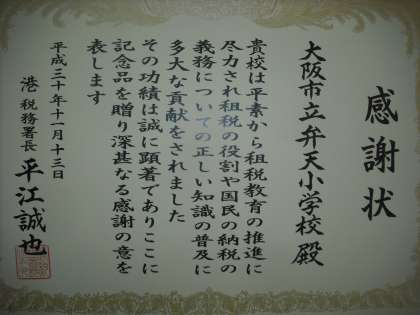 感謝状
大阪市立弁天小学校 殿
貴校は平素から租税教育の推進に
尽力され租税の役割や国民の納税の
義務についての正しい知識の普及に
多大な貢献をされました
その功績は誠に顕著でありここに
記念品を贈り深甚なる感謝の意を
表します
平成三十年十一月十三日
港税務署長 平江誠也